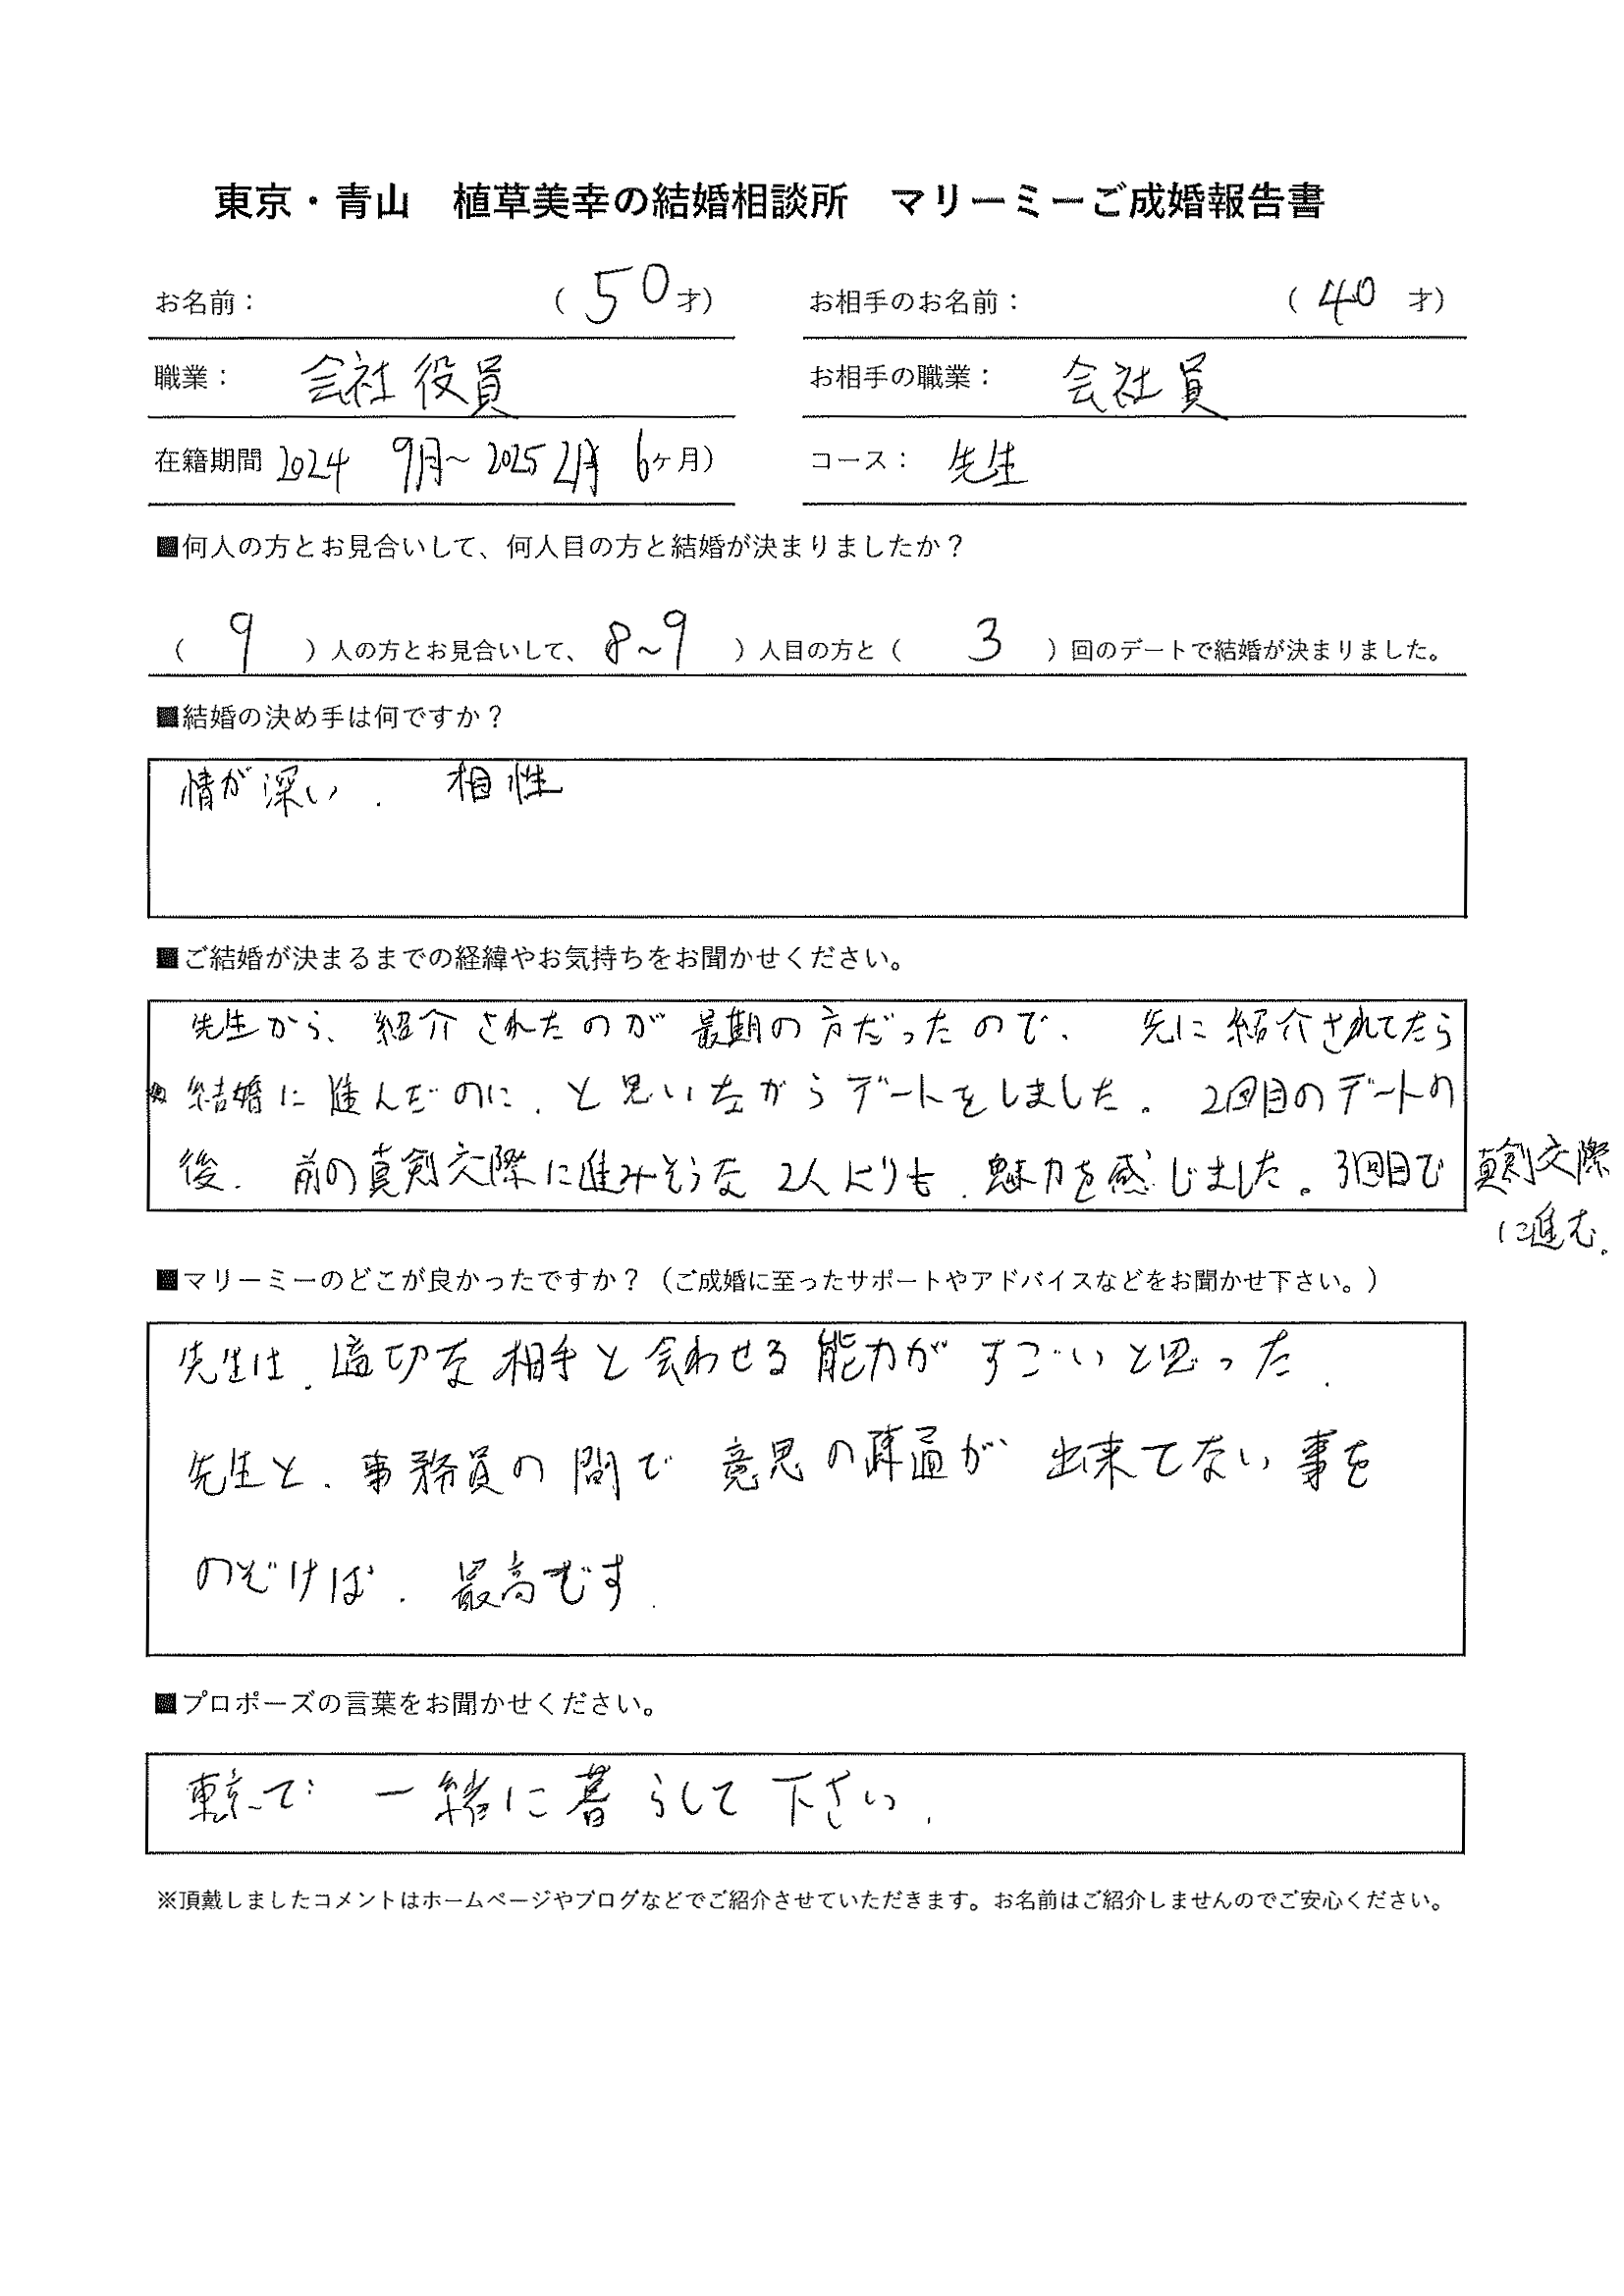 東京・青山　植草美幸の結婚相談所　マリーミーご成婚報告書
お名前：　（ 50 才）　お相手のお名前：　（ 40 才）
職業：　会社役員　お相手の職業：　会社員
在籍期間 2024 9月～2025 2月 6ヶ月）　コース：　先生
■何人の方とお見合いして、何人目の方と結婚が決まりましたか？
（ 9 ）人の方とお見合いして、8～9 ）人目の方と（ 3 ）回のデートで結婚が決まりました。
■結婚の決め手は何ですか？
情が深い、 相性
■ご結婚が決まるまでの経緯やお気持ちをお聞かせください。
先生から、紹介されたのが最期の方だったので、 先に紹介されてたら
結婚に進んだのに、と思いながらデートをしました。 2回目のデートの
後、 前の真剣交際に進みそうな2人よりも、魅力を感じました。3回目で真剣交際
に進む。
■マリーミーのどこが良かったですか？（ご成婚に至ったサポートやアドバイスなどをお聞かせ下さい。）
先生は、適切な相手と会わせる能力がすごいと思った。
先生と、事務員の間で意思の疎通が出来てない事を
のぞけば、最高です。
■プロポーズの言葉をお聞かせください。
東京で 一緒に暮らして下さい。
※頂戴しましたコメントはホームページやブログなどでご紹介させていただきます。お名前はご紹介しませんのでご安心ください。